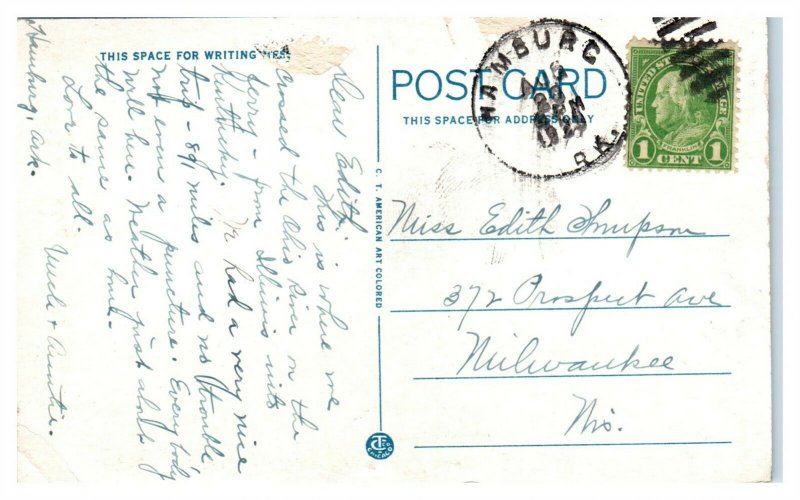 THIS SPACE FOR WRITING
Hamburg, Ark.
Dear Edith,
This is where we
crossed the Ohio River on the
ferry - from Illinois into
Kentucky. We had a very nice
trip - 891 miles and no trouble
not even a puncture. Everybody
well here. Weather just about
the same as home.
Love to all.
Uncle + Auntie.
C. T. AMERICAN ART COLORED
CT
CHICAGO
POST CARD
THIS SPACE FOR ADDRESS ONLY
HAMBURG
ARK.
UNITED STATES POSTAGE
FRANKLIN
1 CENT 1
Miss Edith Simpson
372 Prospect Ave
Milwaukee
Wis.